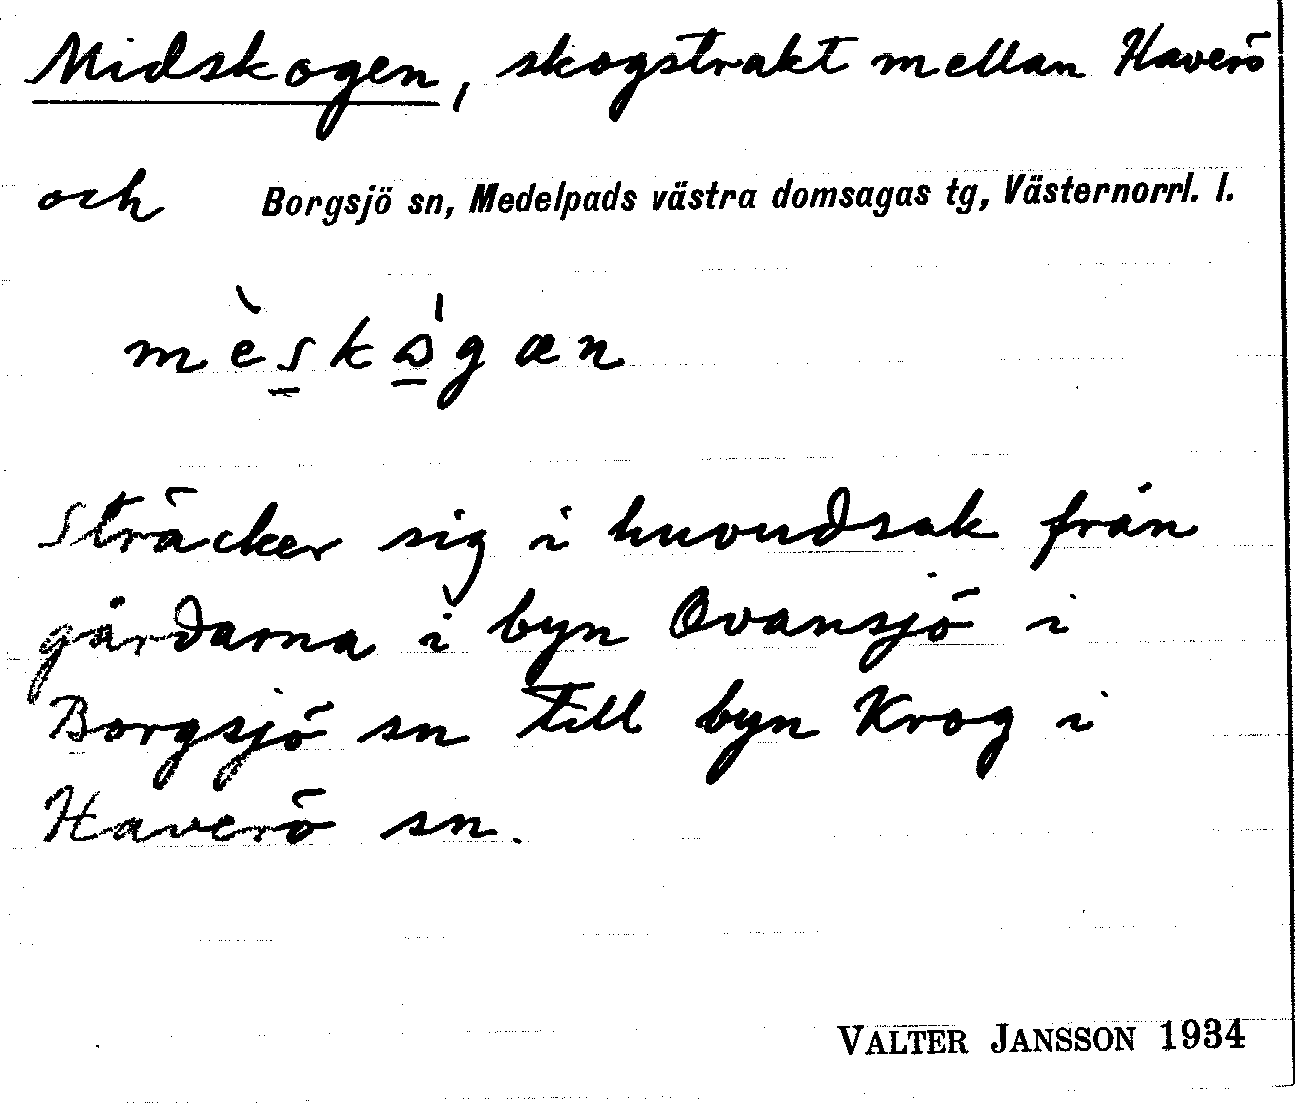 Midskogen, skogstrakt mellan Haverö
och Borgsjö sn, Medelpads västra domsagas tg, Västernorrl. l.
Sträcker sig i huvudsak från
gårdarna i byn Ovansjö i
Borgsjö sn till byn Krog i
Haverö sn.
VALTER JANSSON 1934